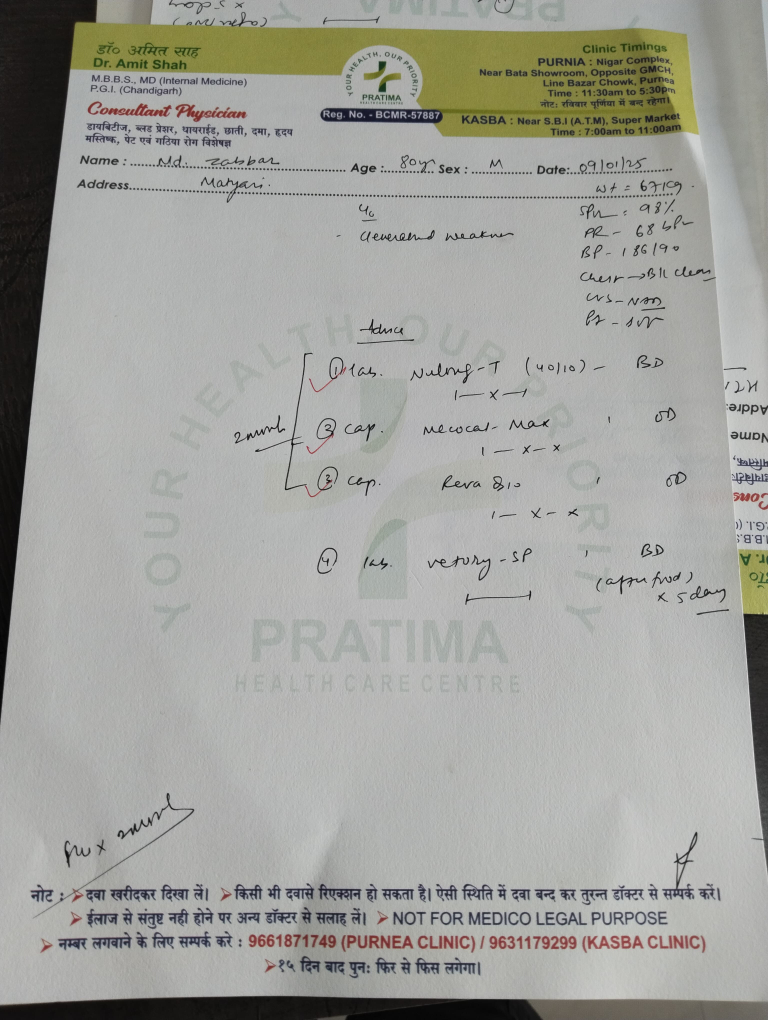 PRATIMA
डॉ० अमित साह
Dr. Amit Shah
M.B.B.S., MD (Internal Medicine)
P.G.I. (Chandigarh)
Consultant Physician
डायबिटीज, ब्लड प्रेशर, थायराईड, छाती, दमा, हृदय
मस्तिष्क, पेट एवं गठिया रोग विशेषज्ञ
YOUR HEALTH, OUR PRIORITY
PRATIMA
HEALTH CARE CENTRE
Reg. No. - BCMR-57887
Clinic Timings
PURNIA : Nigar Complex,
Near Bata Showroom, Opposite GMCH,
Line Bazar Chowk, Purnea
Time : 11:30am to 5:30pm
नोट: रविवार पूर्णिया में बन्द रहेगा।
KASBA : Near S.B.I (A.T.M), Super Market
Time : 7:00am to 11:00am
Name : Md. Zabbar Age : 80yr Sex : M Date: 09/01/25
Address
wt = 67kg.
98%
PR - 68 bpm
BP - 186/90
Chest → B/L clear
CVS - NAD
c/o
- Generalised weakness
Advice
① Tab. (40/10) - BD
1 — x — 1
② Cap. Mecocal - Max OD
1 — x — x
③ Cap. OD
1 — x — x
2 month
④ Tab. - SP BD
(after food)
x 5 days
YOUR HEALTH, OUR PRIORITY
PRATIMA
HEALTH CARE CENTRE
2 month
नोट : ➤दवा खरीदकर दिखा लें। ➤किसी भी दवासे रिएक्शन हो सकता है। ऐसी स्थिति में दवा बन्द कर तुरन्त डॉक्टर से सम्पर्क करें।
➤ईलाज से संतुष्ट नही होने पर अन्य डॉक्टर से सलाह लें। ➤ NOT FOR MEDICO LEGAL PURPOSE
➤नम्बर लगवाने के लिए सम्पर्क करे : 9661871749 (PURNEA CLINIC) / 9631179299 (KASBA CLINIC)
➤१५ दिन बाद पुनः फिर से फिस लगेगा।